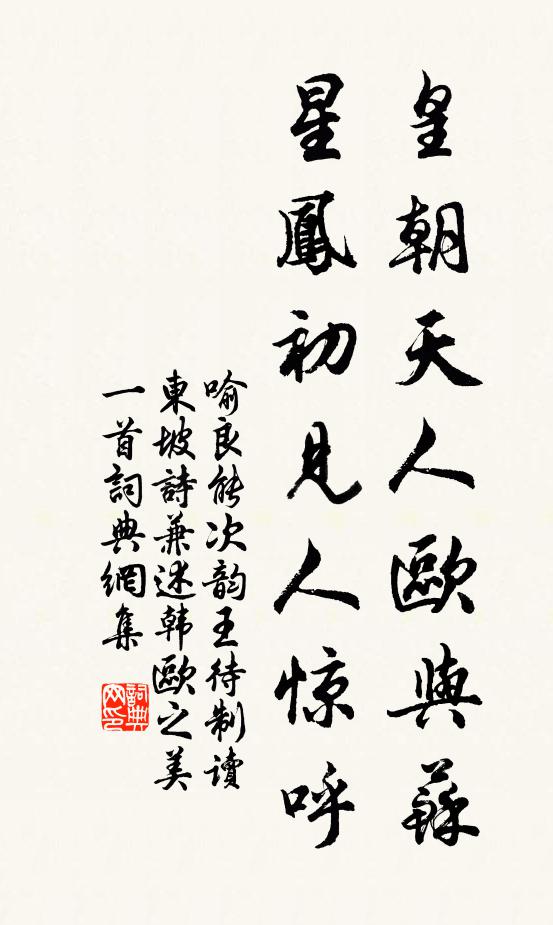 皇朝天人歐與蘇
星鳳初見人惊呼
喻良能次韵王待制讀
東坡詩兼述韩歐之美
一首詞典網集
詞典网印